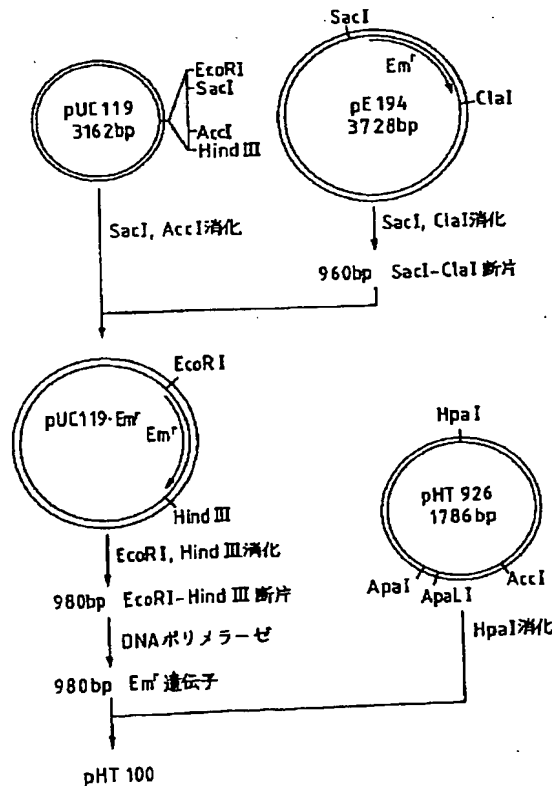 pUC119
3162bp
EcoRI
SacI
AccI
Hind III
SacI
Emʳ
pE194
3728bp
ClaI
SacI, AccI消化
SacI, ClaI消化
960bp SacI-ClaI 断片
pUC119・Emʳ
Emʳ
EcoRI
Hind III
HpaI
pHT 926
1786bp
ApaI
ApaLI
AccI
EcoRI, Hind III消化
HpaI消化
980bp EcoRI-Hind III 断片
DNAポリメラーゼ
980bp Emʳ 遺伝子
pHT 100